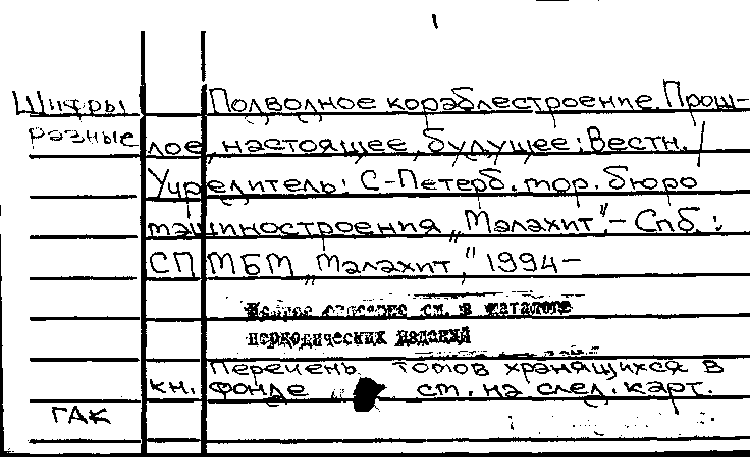 Шифры Подводное кораблестроение. Прош-
разные лое, настоящее, будущее: Вестн. /
Учредитель: С-Петерб. мор. бюро
машиностроения „Малахит". – Спб.:
СПМБМ „Малахит", 1994–
Полное описание см. в каталоге
периодических изданий
Перечень томов хранящихся в
кн. фонде см. на след. карт.
ГАК